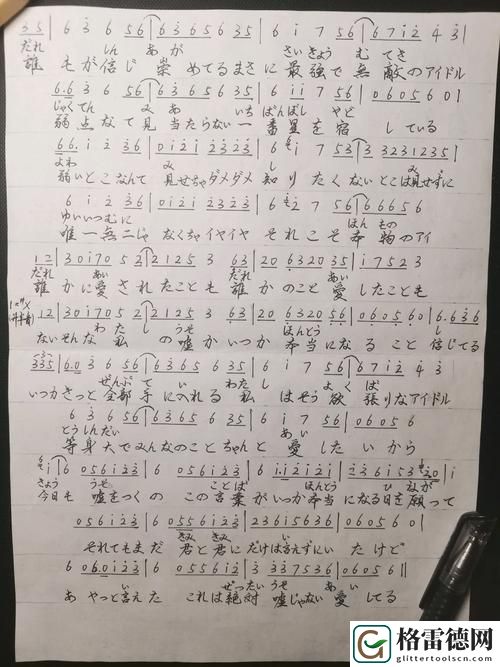 3 5 | 6 3 6 56 | 6 3 6 5 6 35 | 6 i 7 56 | 6 7 i 2 4 3 |
だれ しん あが さいきょう むてき
誰もが信じ崇めてるまさに最強で無敵のアイドル
6.6 3 6 56 | 6 3 6 5 6 35 | 6 ii 7 56 | 0 6 0 5 6 0 |
じゃくてん みあ いちばんぼし やど
弱点なて見当たらない一番星を宿している
66. i 2 36 | 0 i 2 i 2 3 2 3 | 6 i 7 53 | 3 3 2 3 1 2 3 5 |
よわ み し み
弱いとこなんて見せちゃダメダメ知りたくないとこは見せずに
6 i 2 36 | 0 i 2 i 2 3 2 3 | 6 2 7 56 | 6 6 6 5 6
ゆいいつむに ほんもの
唯一無二じゃなくちゃイヤイヤそれこそ本物のアイ
12 | 3 0 i 7 0 5 2 | 2 1 2 5 3 63 | 2 0 6 3 2 0 3 5 | i 7 5 2 3
だれ あい だれ あい
誰かに愛されたことも誰かのこと愛したことも
12 | 3 0 i 7 0 5 2 | 2 1 2 5 3 63 | 2 0 6 3 2 0 5 6 | 0 6 0 5 6 0 | 6.6 3 6
わたし うそ ほんとう
ないそんな私の嘘がいつか本当になること信じてる
3 3 5 | 6.0 3 6 56 | 6 3 6 5 6 35 | 6 i 7 56 | 6 7 i 2 4 3
ぜんぶて い わたし よくば
いつかきっと全部手に入れる私はそう欲張りなアイドル
6 3 6 56 | 6 3 6 5 6 35 | 6 i 7 56 | 0 6 0 5 6
とうしんだい あい
等身大でみんなのことちゃんと愛したいから
i | 6 0 5 6 i 2 3 | 6 0 5 6 i 2 3 | 6 i i 2 i 2 i | 2 3 6 i 5 3 2 0 | i
きょう うそ ことば ほんとう ひ ねが
今日も嘘をつくのこの言葉がいつか本当になる日を願って
0 5 6 i 2 3 | 6 0 5 5 6 i 2 3 | 2 3 6 i 5 6 3 6 | 0 6 0 5 6 0 |
きみ きみ い
それでもまだ君と君にだけは言えずにいたけど
6 0 6.0 i 2 3 | 6 0 5 5 6 i 2 | 3 3 3 7 5 3 6 | 0 6 0 5 6 ||
い ぜったい うそ あい
あやっと言えたこれは絶対嘘じゃない愛してる
格雷德网
glittertoolscn.com